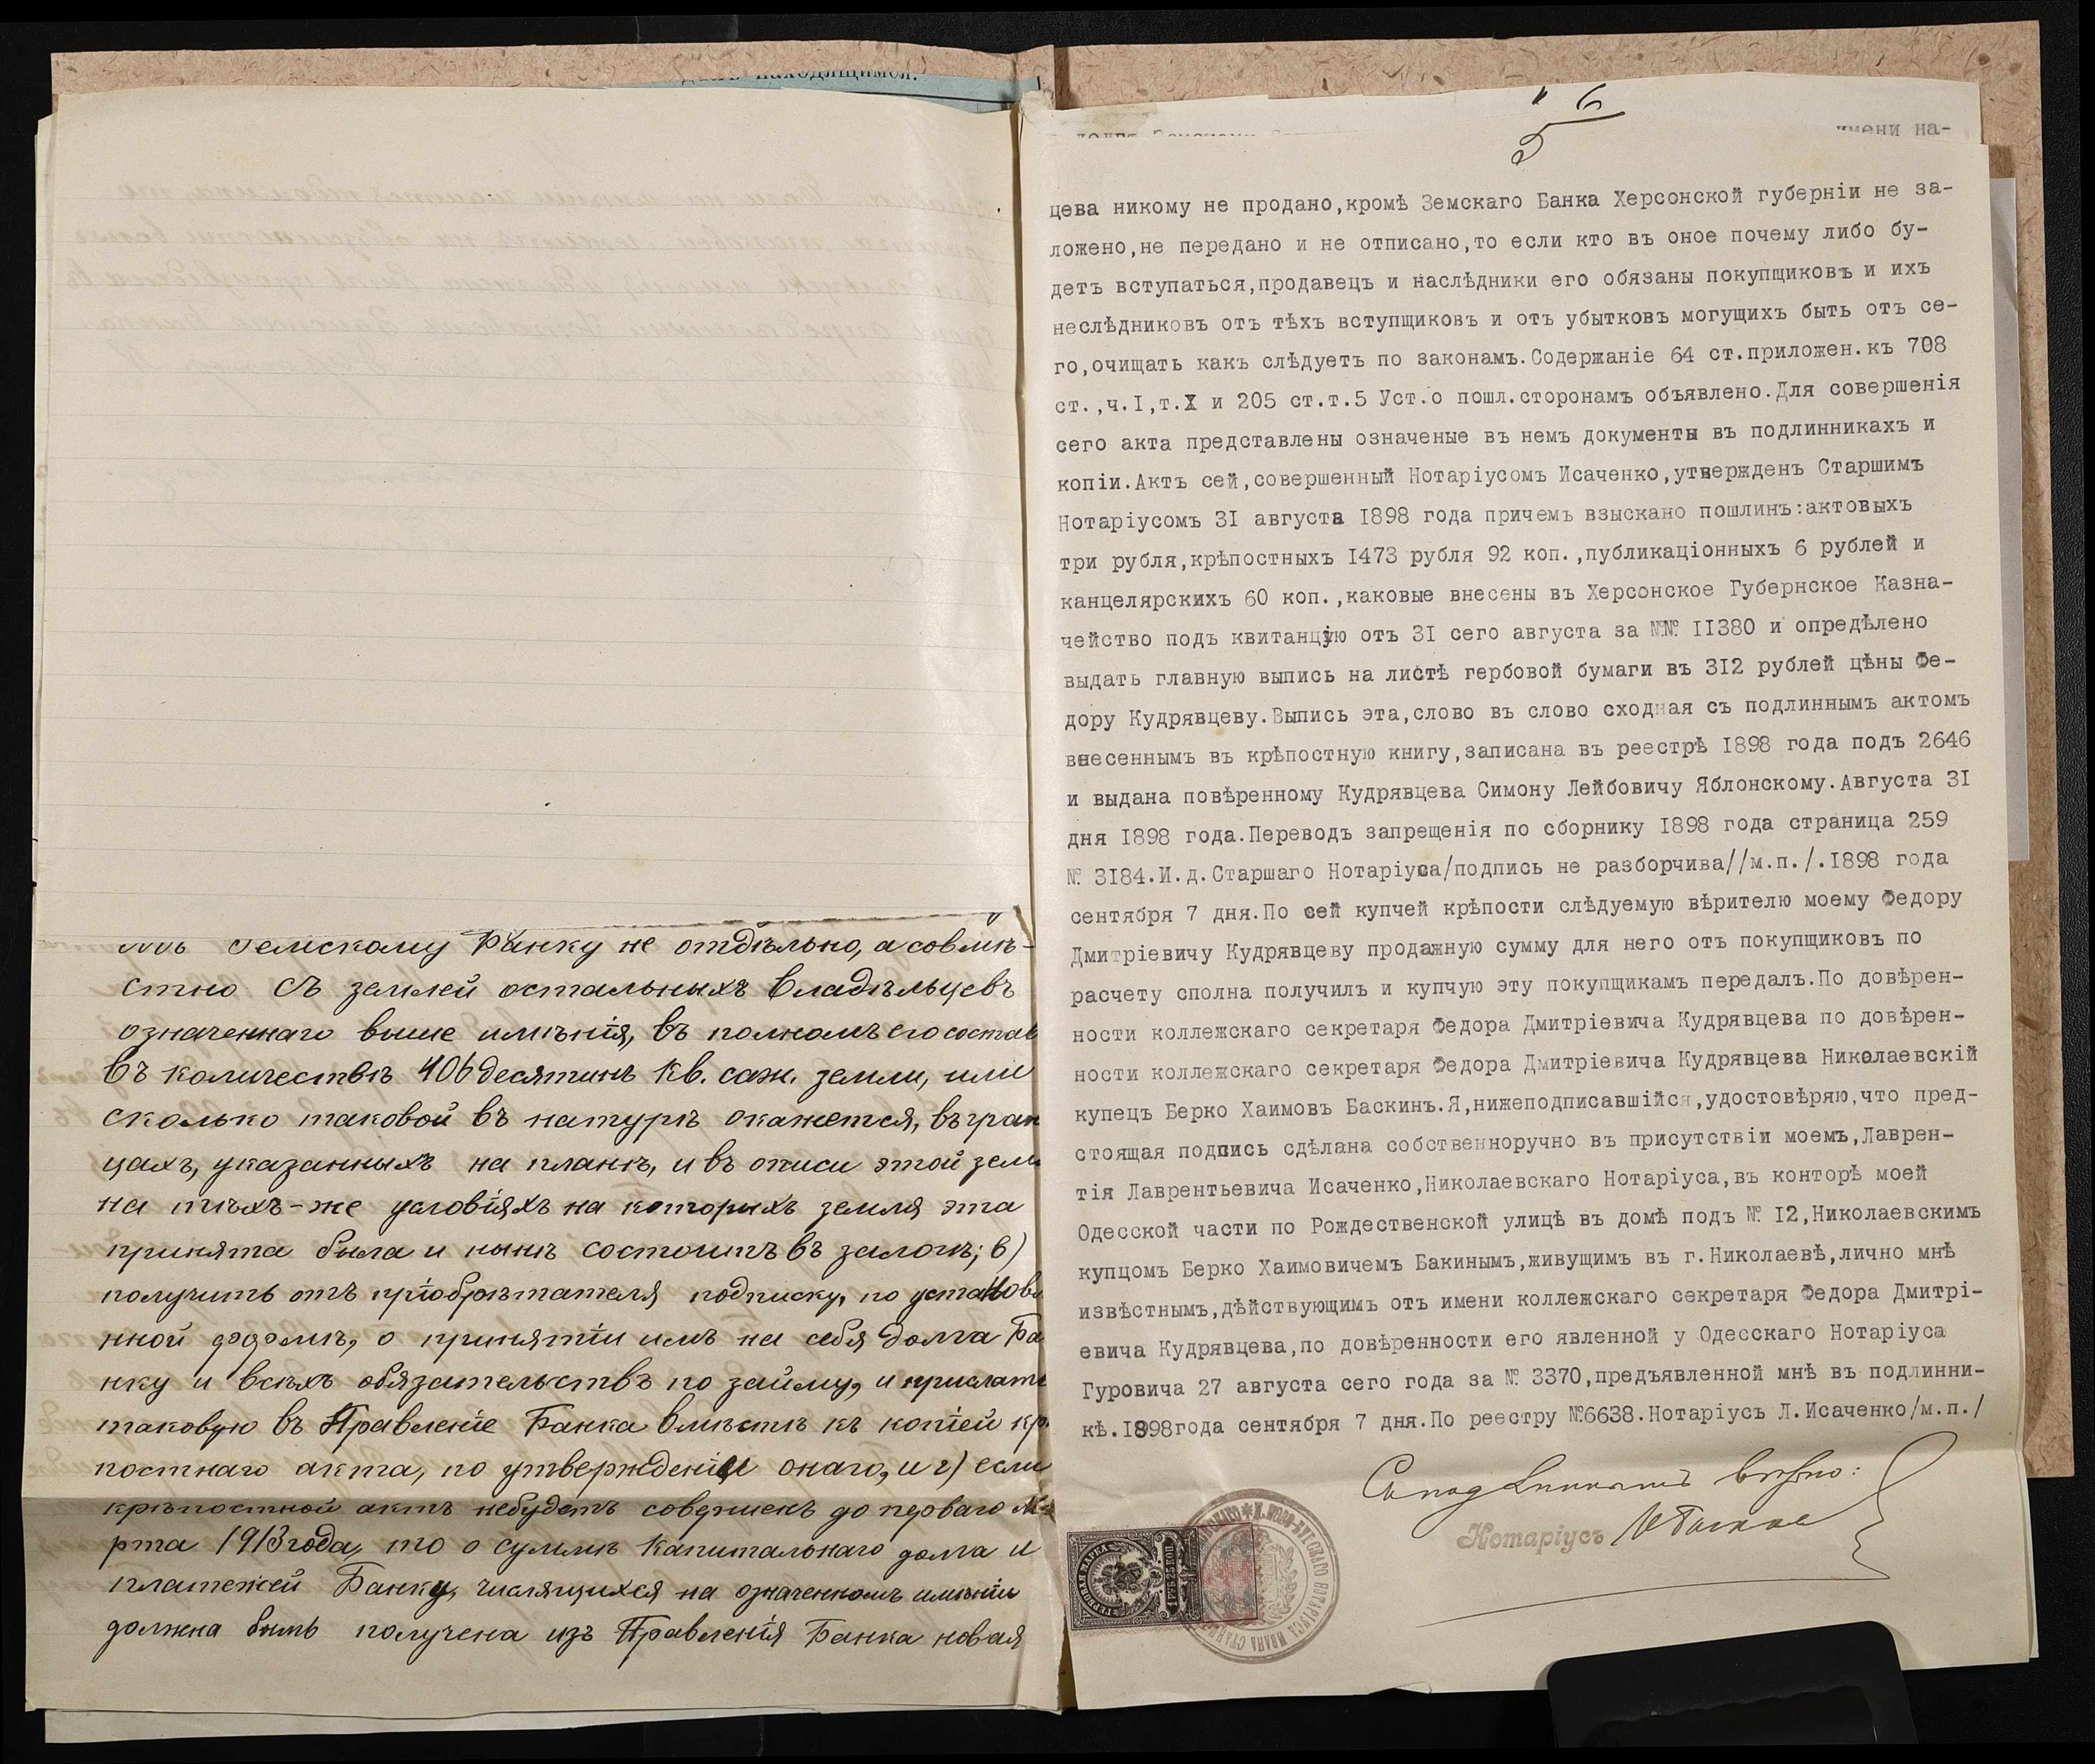 находящимся.
Земскому Банку не отдѣльно, а совмѣ-
стно съ землей остальныхъ владѣльцевъ
означеннаго выше имѣнія, въ полномъ его состав
въ количествѣ 406 десятинъ кв. саж. земли, или
сколько таковой въ натурѣ окажется, въ гран
цахъ, указанныхъ на планѣ, и въ описи этой земл
на тѣхъ-же условіяхъ на которыхъ земля эта
принята была и нынѣ состоитъ въ залогѣ; в)
получить отъ пріобрѣтателя подписку, по установл
нной формѣ, о принятіи имъ на себя долга Ба
нку и всѣхъ обязательствъ по займу, и прислать
таковую въ Правленіе Банка вмѣстѣ къ копіей кр
постнаго акта, по утвержденіи онаго, и г) если
крѣпостной актъ небудетъ совершенъ до перваго Ма
рта 1913 года, то о суммѣ капитальнаго долга и
платежей Банку, числящихся на означенномъ имѣніи
должна быть получена изъ Правленія Банка новая
6
5
имени на-
цева никому не продано,кромѣ Земскаго Банка Херсонской губерніи не за-
ложено,не передано и не отписано,то если кто въ оное почему либо бу-
детъ вступаться,продавецъ и наслѣдники его обязаны покупщиковъ и ихъ
неслѣдниковъ отъ тѣхъ вступщиковъ и отъ убытковъ могущихъ быть отъ се-
го,очищать какъ слѣдуетъ по законамъ.Содержаніе 64 ст.приложен.къ 708
ст.,ч.I,т.X и 205 ст.т.5 Уст.о пошл.сторонамъ объявлено.Для совершенія
сего акта представлены означеные въ немъ документы въ подлинникахъ и
копіи.Актъ сей,совершенный Нотаріусомъ Исаченко,утвержденъ Старшимъ
Нотаріусомъ 3I августа I898 года причемъ взыскано пошлинъ:актовыхъ
три рубля,крѣпостныхъ I473 рубля 92 коп.,публикаціонныхъ 6 рублей и
канцелярскихъ 60 коп.,каковые внесены въ Херсонское Губернское Казна-
чейство подъ квитанцію отъ 3I сего августа за №№ II380 и опредѣлено
выдать главную выпись на листѣ гербовой бумаги въ 3I2 рублей цѣны Фе-
дору Кудрявцеву.Выпись эта,слово въ слово сходная съ подлиннымъ актомъ
внесеннымъ въ крѣпостную книгу,записана въ реестрѣ I898 года подъ 2646
и выдана повѣренному Кудрявцева Симону Лейбовичу Яблонскому.Августа 3I
дня I898 года.Переводъ запрещенія по сборнику I898 года страница 259
№ 3I84.И.д.Старшаго Нотаріуса/подпись не разборчива//м.п./.I898 года
сентября 7 дня.По сей купчей крѣпости слѣдуемую вѣрителю моему Федору
Дмитріевичу Кудрявцеву продажную сумму для него отъ покупщиковъ по
расчету сполна получилъ и купчую эту покупщикамъ передалъ.По довѣрен-
ности коллежскаго секретаря Федора Дмитріевича Кудрявцева по довѣрен-
ности коллежскаго секретаря Федора Дмитріевича Кудрявцева Николаевскій
купецъ Берко Хаимовъ Баскинъ.Я,нижеподписавшійся,удостовѣряю,что пред-
стоящая подпись сдѣлана собственноручно въ присутствіи моемъ,Лаврен-
тія Лаврентьевича Исаченко,Николаевскаго Нотаріуса,въ конторѣ моей
Одесской части по Рождественской улицѣ въ домѣ подъ № I2,Николаевскимъ
купцомъ Берко Хаимовичемъ Бакинымъ,живущимъ въ г.Николаевѣ,лично мнѣ
извѣстнымъ,дѣйствующимъ отъ имени коллежскаго секретаря Федора Дмитрі-
евича Кудрявцева,по довѣренности его явленной у Одесскаго Нотаріуса
Гуровича 27 августа сего года за № 3370,предъявленной мнѣ въ подлинни-
кѣ.I898года сентября 7 дня.По реестру №6638.Нотаріусъ Л.Исаченко/м.п./
вѣрно:
Нотаріусъ
ГЕРБОВАЯ МАРКА
1 РУБ 25 КОП.